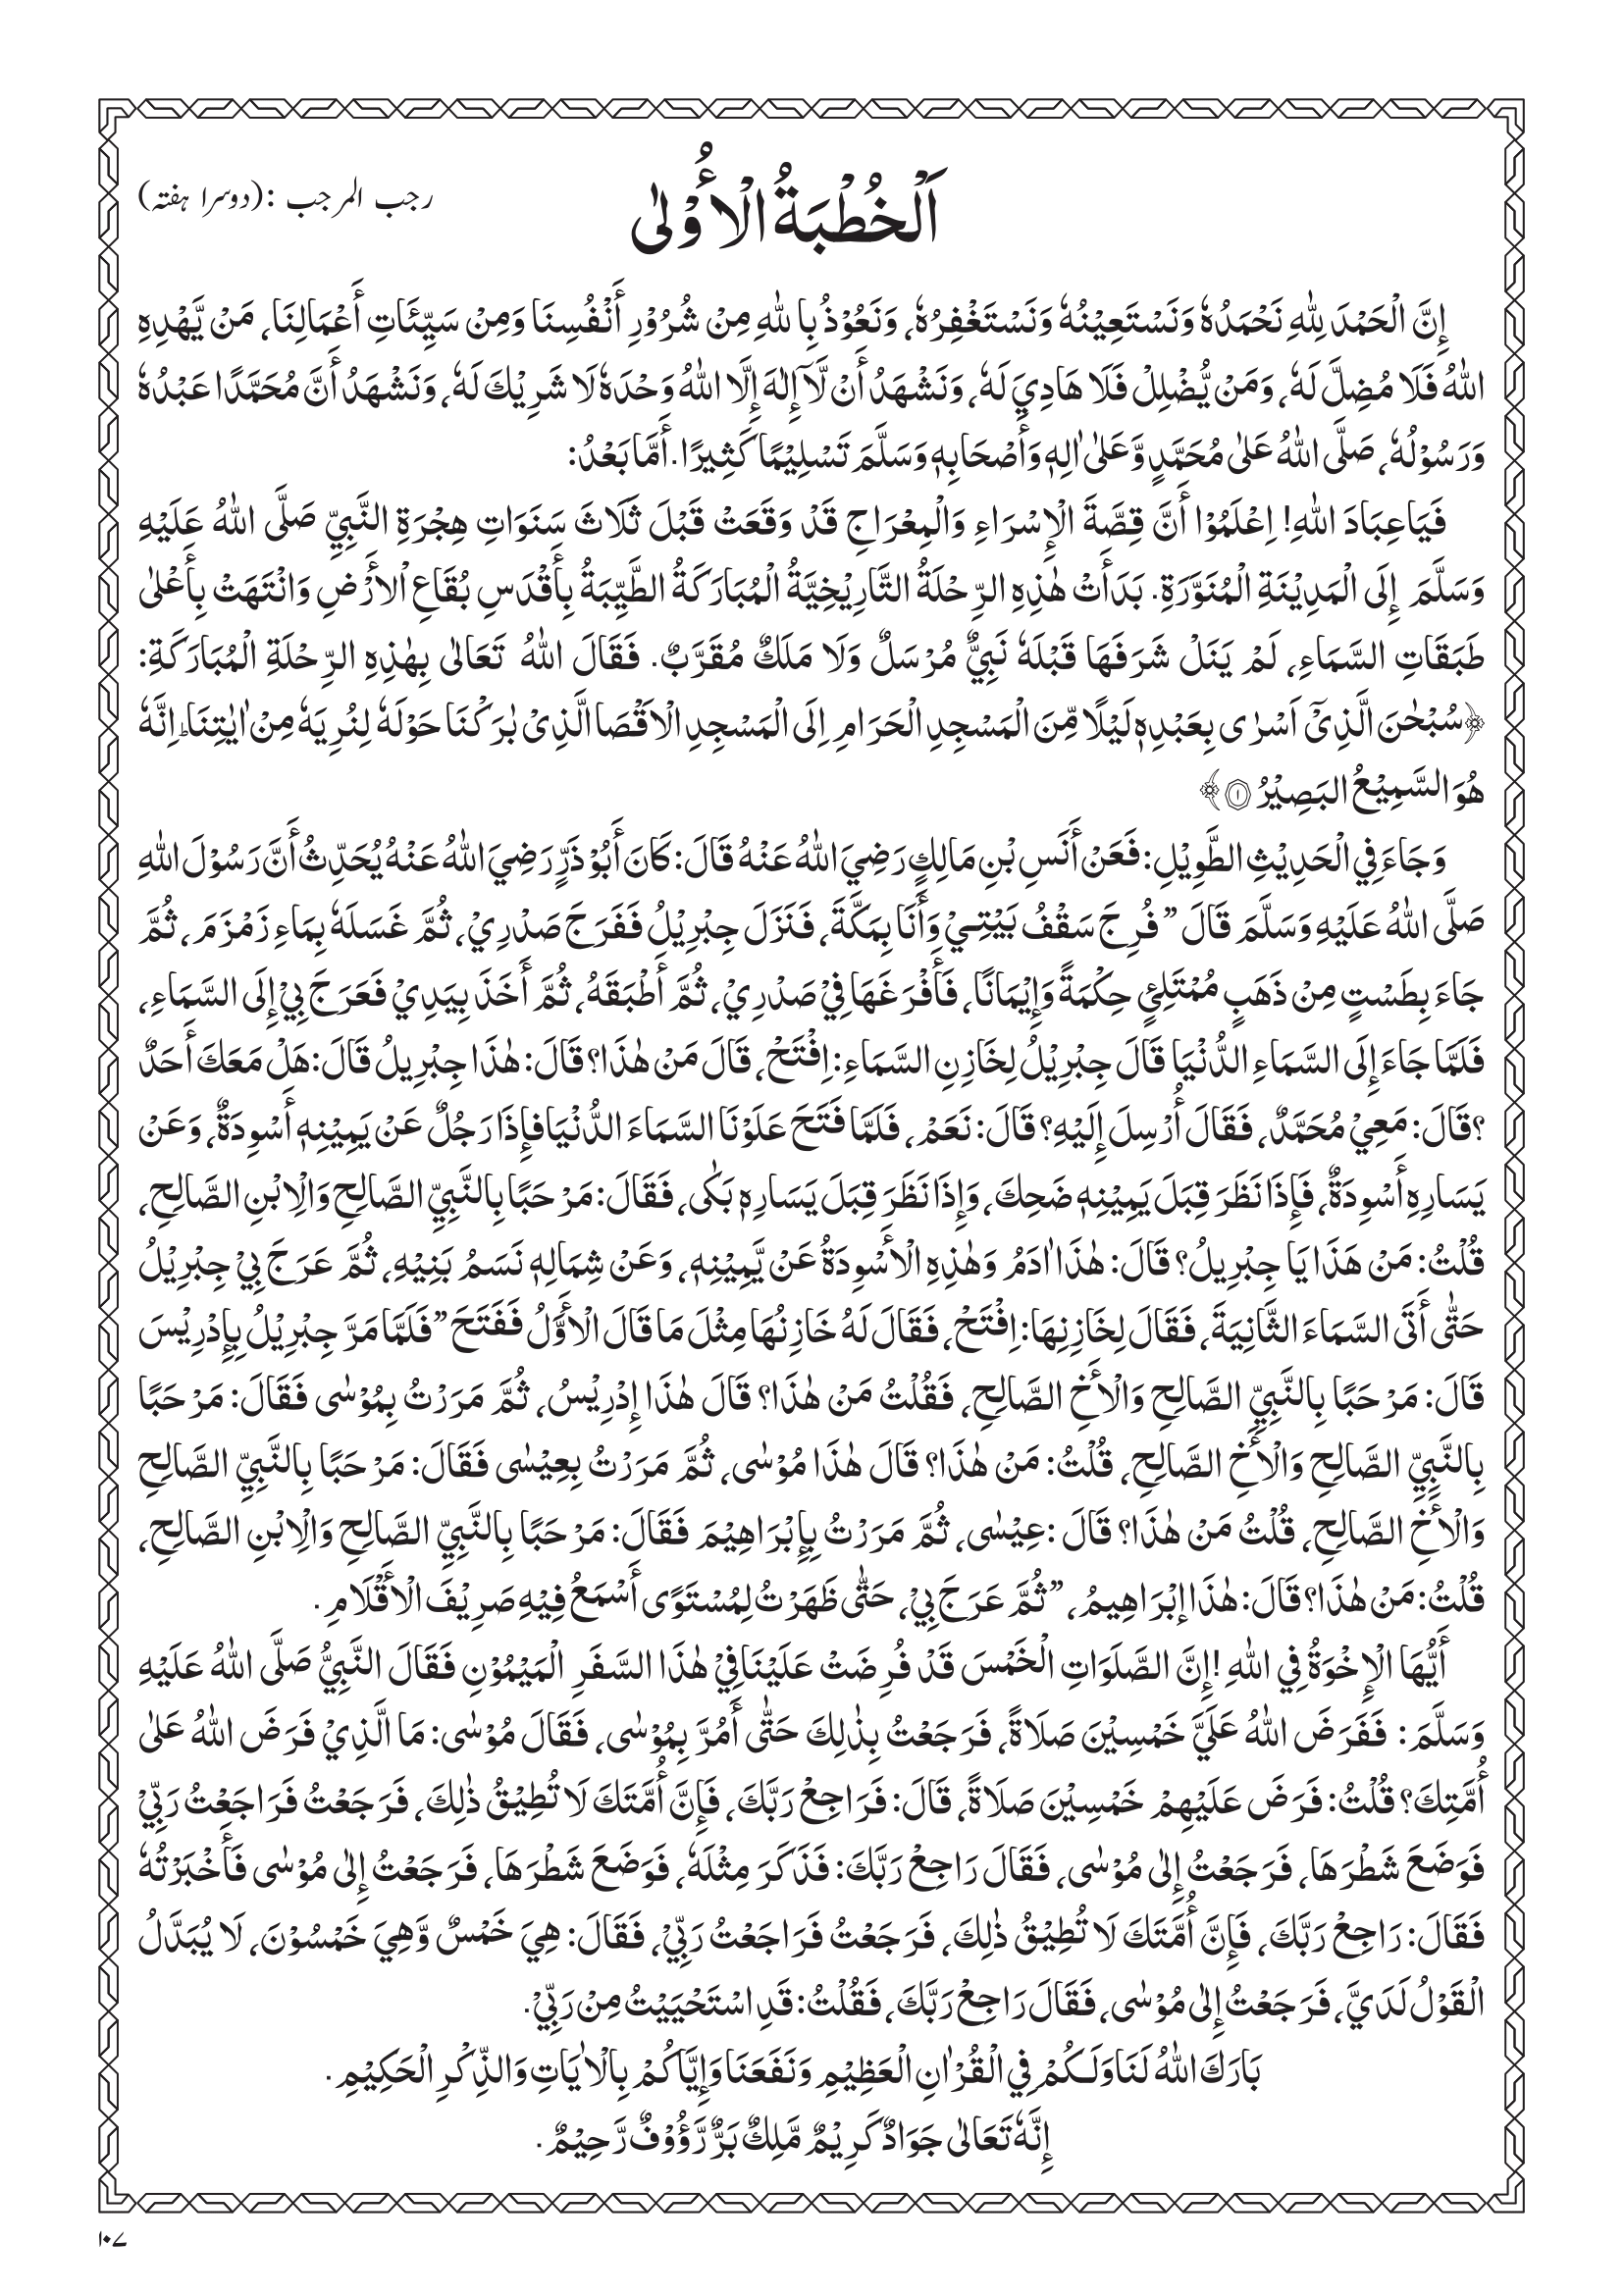 رجب المرجب :(دوسرا ہفتہ)
اَلْخُطْبَةُ الْأُوْلٰى
إِنَّ الْحَمْدَ لِلّٰهِ نَحْمَدُهٗ وَنَسْتَعِيْنُهٗ وَنَسْتَغْفِرُهٗ، وَنَعُوْذُ بِا للّٰهِ مِنْ شُرُوْرِ أَنْفُسِنَا وَمِنْ سَيِّئَاتِ أَعْمَالِنَا، مَنْ يَّهْدِهِ
اللّٰهُ فَلَا مُضِلَّ لَهٗ، وَمَنْ يُّضْلِلْ فَلَا هَادِيَ لَهٗ، وَنَشْهَدُ أَنْ لَّآ إِلٰهَ إِلَّا اللّٰهُ وَحْدَهٗ لَا شَرِيْكَ لَهٗ، وَنَشْهَدُ أَنَّ مُحَمَّدًا عَبْدُهٗ
وَرَسُوْلُهٗ، صَلَّى اللّٰهُ عَلٰى مُحَمَّدٍ وَّعَلٰى اٰلِهٖ وَأَصْحَابِهٖ وَسَلَّمَ تَسْلِيْمًا كَثِيرًا. أَمَّا بَعْدُ:
فَيَاعِبَادَ اللّٰهِ! اِعْلَمُوْا أَنَّ قِصَّةَ الْإِسْرَاءِ وَالْمِعْرَاجِ قَدْ وَقَعَتْ قَبْلَ ثَلَاثَ سَنَوَاتِ هِجْرَةِ النَّبِيِّ صَلَّى اللّٰهُ عَلَيْهِ
وَسَلَّمَ إِلَى الْمَدِيْنَةِ الْمُنَوَّرَةِ. بَدَأَتْ هٰذِهِ الرِّحْلَةُ التَّارِيْخِيَّةُ الْمُبَارَكَةُ الطَّيِّبَةُ بِأَقْدَسِ بُقَاعِ الْأَرْضِ وَانْتَهَتْ بِأَعْلٰى
طَبَقَاتِ السَّمَاءِ، لَمْ يَنَلْ شَرَفَهَا قَبْلَهٗ نَبِيٌّ مُرْسَلٌ وَلَا مَلَكٌ مُقَرَّبٌ. فَقَالَ اللّٰهُ تَعَالٰى بِهٰذِهِ الرِّحْلَةِ الْمُبَارَكَةِ:
﴿سُبْحٰنَ الَّذِىْٓ اَسْرٰى بِعَبْدِهٖ لَيْلًا مِّنَ الْمَسْجِدِ الْحَرَامِ اِلَى الْمَسْجِدِ الْاَقْصَا الَّذِىْ بٰرَكْنَا حَوْلَهٗ لِنُرِيَهٗ مِنْ اٰيٰتِنَاؕ اِنَّهٗ
هُوَ السَّمِيْعُ البَصِيْرُ ۝۱﴾
وَجَاءَ فِي الْحَدِيْثِ الطَّوِيْلِ: فَعَنْ أَنَسِ بْنِ مَالِكٍ رَضِيَ اللّٰهُ عَنْهُ قَالَ: كَانَ أَبُوْ ذَرٍّ رَضِيَ اللّٰهُ عَنْهُ يُحَدِّثُ أَنَّ رَسُوْلَ اللّٰهِ
صَلَّى اللّٰهُ عَلَيْهِ وَسَلَّمَ قَالَ ” فُرِجَ سَقْفُ بَيْتِيْ وَأَنَا بِمَكَّةَ، فَنَزَلَ جِبْرِيْلُ فَفَرَجَ صَدْرِيْ، ثُمَّ غَسَلَهٗ بِمَاءِ زَمْزَمَ، ثُمَّ
جَاءَ بِطَسْتٍ مِنْ ذَهَبٍ مُمْتَلِئٍ حِكْمَةً وَإِيْمَانًا، فَأَفْرَغَهَا فِيْ صَدْرِيْ، ثُمَّ أَطْبَقَهُ، ثُمَّ أَخَذَ بِيَدِيْ فَعَرَجَ بِيْ إِلَى السَّمَاءِ،
فَلَمَّا جَاءَ إِلَى السَّمَاءِ الدُّنْيَا قَالَ جِبْرِيْلُ لِخَازِنِ السَّمَاءِ: اِفْتَحْ، قَالَ مَنْ هٰذَا؟ قَالَ: هٰذَا جِبْرِيلُ قَالَ: هَلْ مَعَكَ أَحَدٌ
؟ قَالَ: مَعِيْ مُحَمَّدٌ، فَقَالَ أُرْسِلَ إِلَيْهِ؟ قَالَ: نَعَمْ، فَلَمَّا فَتَحَ عَلَوْنَا السَّمَاءَ الدُّنْيَا فإِذَا رَجُلٌ عَنْ يَمِيْنِهٖ أَسْوِدَةٌ، وَعَنْ
يَسَارِهِ أَسْوِدَةٌ، فَإِذَا نَظَرَ قِبَلَ يَمِيْنِهٖ ضَحِكَ، وَإِذَا نَظَرَ قِبَلَ يَسَارِهٖ بَكٰى، فَقَالَ: مَرْحَبًا بِالنَّبِيِّ الصَّالِحِ وَالْاِبْنِ الصَّالِحِ،
قُلْتُ: مَنْ هَذَا يَا جِبْرِيلُ؟ قَالَ: هٰذَا اٰدَمُ وَهٰذِهِ الْأَسْوِدَةُ عَنْ يَّمِيْنِهٖ، وَعَنْ شِمَالِهٖ نَسَمُ بَنِيْهِ، ثُمَّ عَرَجَ بِيْ جِبْرِيْلُ
حَتّٰى أَتَى السَّمَاءَ الثَّانِيَةَ، فَقَالَ لِخَازِنِهَا: اِفْتَحْ، فَقَالَ لَهُ خَازِنُهَا مِثْلَ مَا قَالَ الْأَوَّلُ فَفَتَحَ ” فَلَمَّا مَرَّ جِبْرِيْلُ بِإِدْرِيْسَ
قَالَ: مَرْحَبًا بِالنَّبِيِّ الصَّالِحِ وَالْأَخِ الصَّالِحِ، فَقُلْتُ مَنْ هٰذَا؟ قَالَ هٰذَا إِدْرِيْسُ، ثُمَّ مَرَرْتُ بِمُوْسٰى فَقَالَ: مَرْحَبًا
بِالنَّبِيِّ الصَّالِحِ وَالْأَخِ الصَّالِحِ، قُلْتُ: مَنْ هٰذَا؟ قَالَ هٰذَا مُوْسٰى، ثُمَّ مَرَرْتُ بِعِيْسٰى فَقَالَ: مَرْحَبًا بِالنَّبِيِّ الصَّالِحِ
وَالْأَخِ الصَّالِحِ، قُلْتُ مَنْ هٰذَا؟ قَالَ :عِيْسٰى، ثُمَّ مَرَرْتُ بِإِبْرَاهِيْمَ فَقَالَ: مَرْحَبًا بِالنَّبِيِّ الصَّالِحِ وَالْاِبْنِ الصَّالِحِ،
قُلْتُ: مَنْ هٰذَا؟ قَالَ: هٰذَا إبْرَاهِيمُ، ” ثُمَّ عَرَجَ بِيْ، حَتّٰى ظَهَرْتُ لِمُسْتَوًى أَسْمَعُ فِيْهِ صَرِيْفَ الْأَقْلَامِ.
أَيُّهَا الْإِخْوَةُ فِي اللّٰهِ !إِنَّ الصَّلَوَاتِ الْخَمْسَ قَدْ فُرِضَتْ عَلَيْنَا فِيْ هٰذَا السَّفَرِ الْمَيْمُوْنِ فَقَالَ النَّبِيُّ صَلَّى اللّٰهُ عَلَيْهِ
وَسَلَّمَ: فَفَرَضَ اللّٰهُ عَلَيَّ خَمْسِيْنَ صَلَاةً، فَرَجَعْتُ بِذٰلِكَ حَتّٰى أَمُرَّ بِمُوْسٰى، فَقَالَ مُوْسٰى: مَا الَّذِيْ فَرَضَ اللّٰهُ عَلٰى
أُمَّتِكَ؟ قُلْتُ: فَرَضَ عَلَيْهِمْ خَمْسِيْنَ صَلَاةً، قَالَ: فَرَاجِعْ رَبَّكَ، فَإِنَّ أُمَّتَكَ لَا تُطِيْقُ ذٰلِكَ، فَرَجَعْتُ فَرَاجَعْتُ رَبِّيْ
فَوَضَعَ شَطْرَهَا، فَرَجَعْتُ إِلٰى مُوْسٰى، فَقَالَ رَاجِعْ رَبَّكَ: فَذَكَرَ مِثْلَهٗ، فَوَضَعَ شَطْرَهَا، فَرَجَعْتُ إِلٰى مُوْسٰى فَأَخْبَرْتُهٗ
فَقَالَ: رَاجِعْ رَبَّكَ، فَإِنَّ أُمَّتَكَ لَا تُطِيْقُ ذٰلِكَ، فَرَجَعْتُ فَرَاجَعْتُ رَبِّيْ، فَقَالَ: هِيَ خَمْسٌ وَّهِيَ خَمْسُوْنَ، لَا يُبَدَّلُ
الْقَوْلُ لَدَيَّ، فَرَجَعْتُ إِلٰى مُوْسٰى، فَقَالَ رَاجِعْ رَبَّكَ، فَقُلْتُ: قَدِ اسْتَحْيَيْتُ مِنْ رَبِّيْ.
بَارَكَ اللّٰهُ لَنَا وَلَكُمْ فِي الْقُرْاٰنِ الْعَظِيْمِ وَنَفَعَنَا وَإِيَّاكُمْ بِالْاٰيَاتِ وَالذِّكْرِ الْحَكِيْمِ.
إِنَّهٗ تَعَالٰى جَوَادٌ كَرِيْمٌ مَّلِكٌ بَرٌّ رَّؤُوْفٌ رَّحِيْمٌ.
۱۰۷